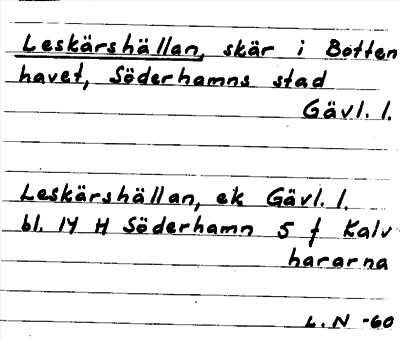 Leskärshällan, skär i Botten
havet, Söderhamns stad
Gävl. l.
Leskärshällan, ek Gävl. l.
bl. 14 H Söderhamn 5 f Kalv
hararna
L. N -60